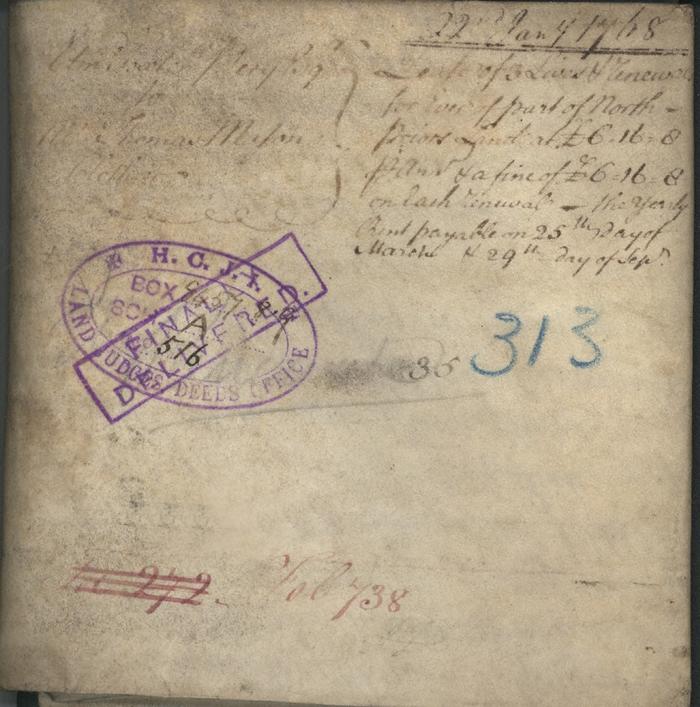 22nd Jany 1768
Pery Esqr
to
Thomas Meson
Lease of 3 Lives & renewal
for Ever of part of North-
Priors Land at £6-16-8
p Ann & a fine of £6-16-8
on Each renewal - the Yearly
Rent payable on 25th Day of
March & 29th day of Sepr
H. C. J. I.
LAND JUDGES DEEDS OFFICE
BOX
A
516
FINAL
DELIVERED
35
313
272
Fol 738